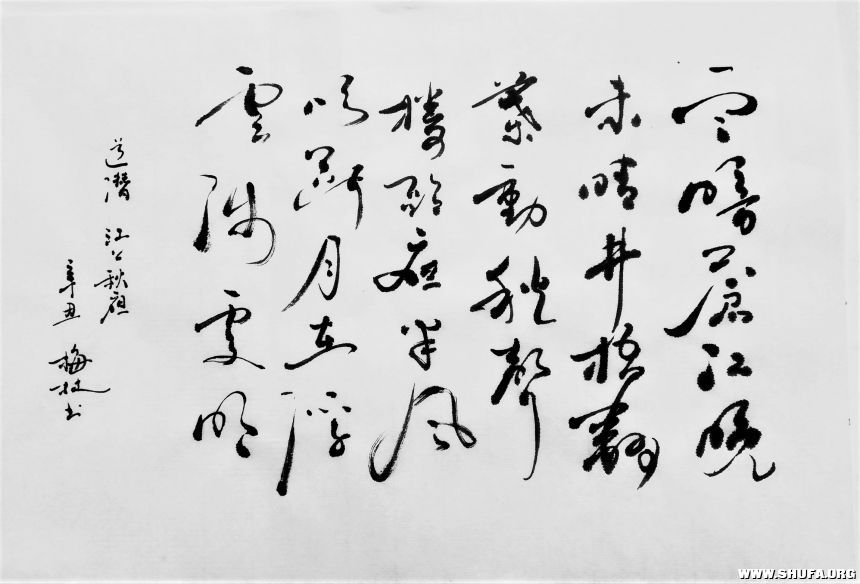 雨暗蒼江晚
未晴井梧翻
葉動秋聲
樓頭夜半風
吹斷月在浮
雲淺處明
道潛 江上秋夜
辛丑 梅枝书
WWW.SHUFA.ORG